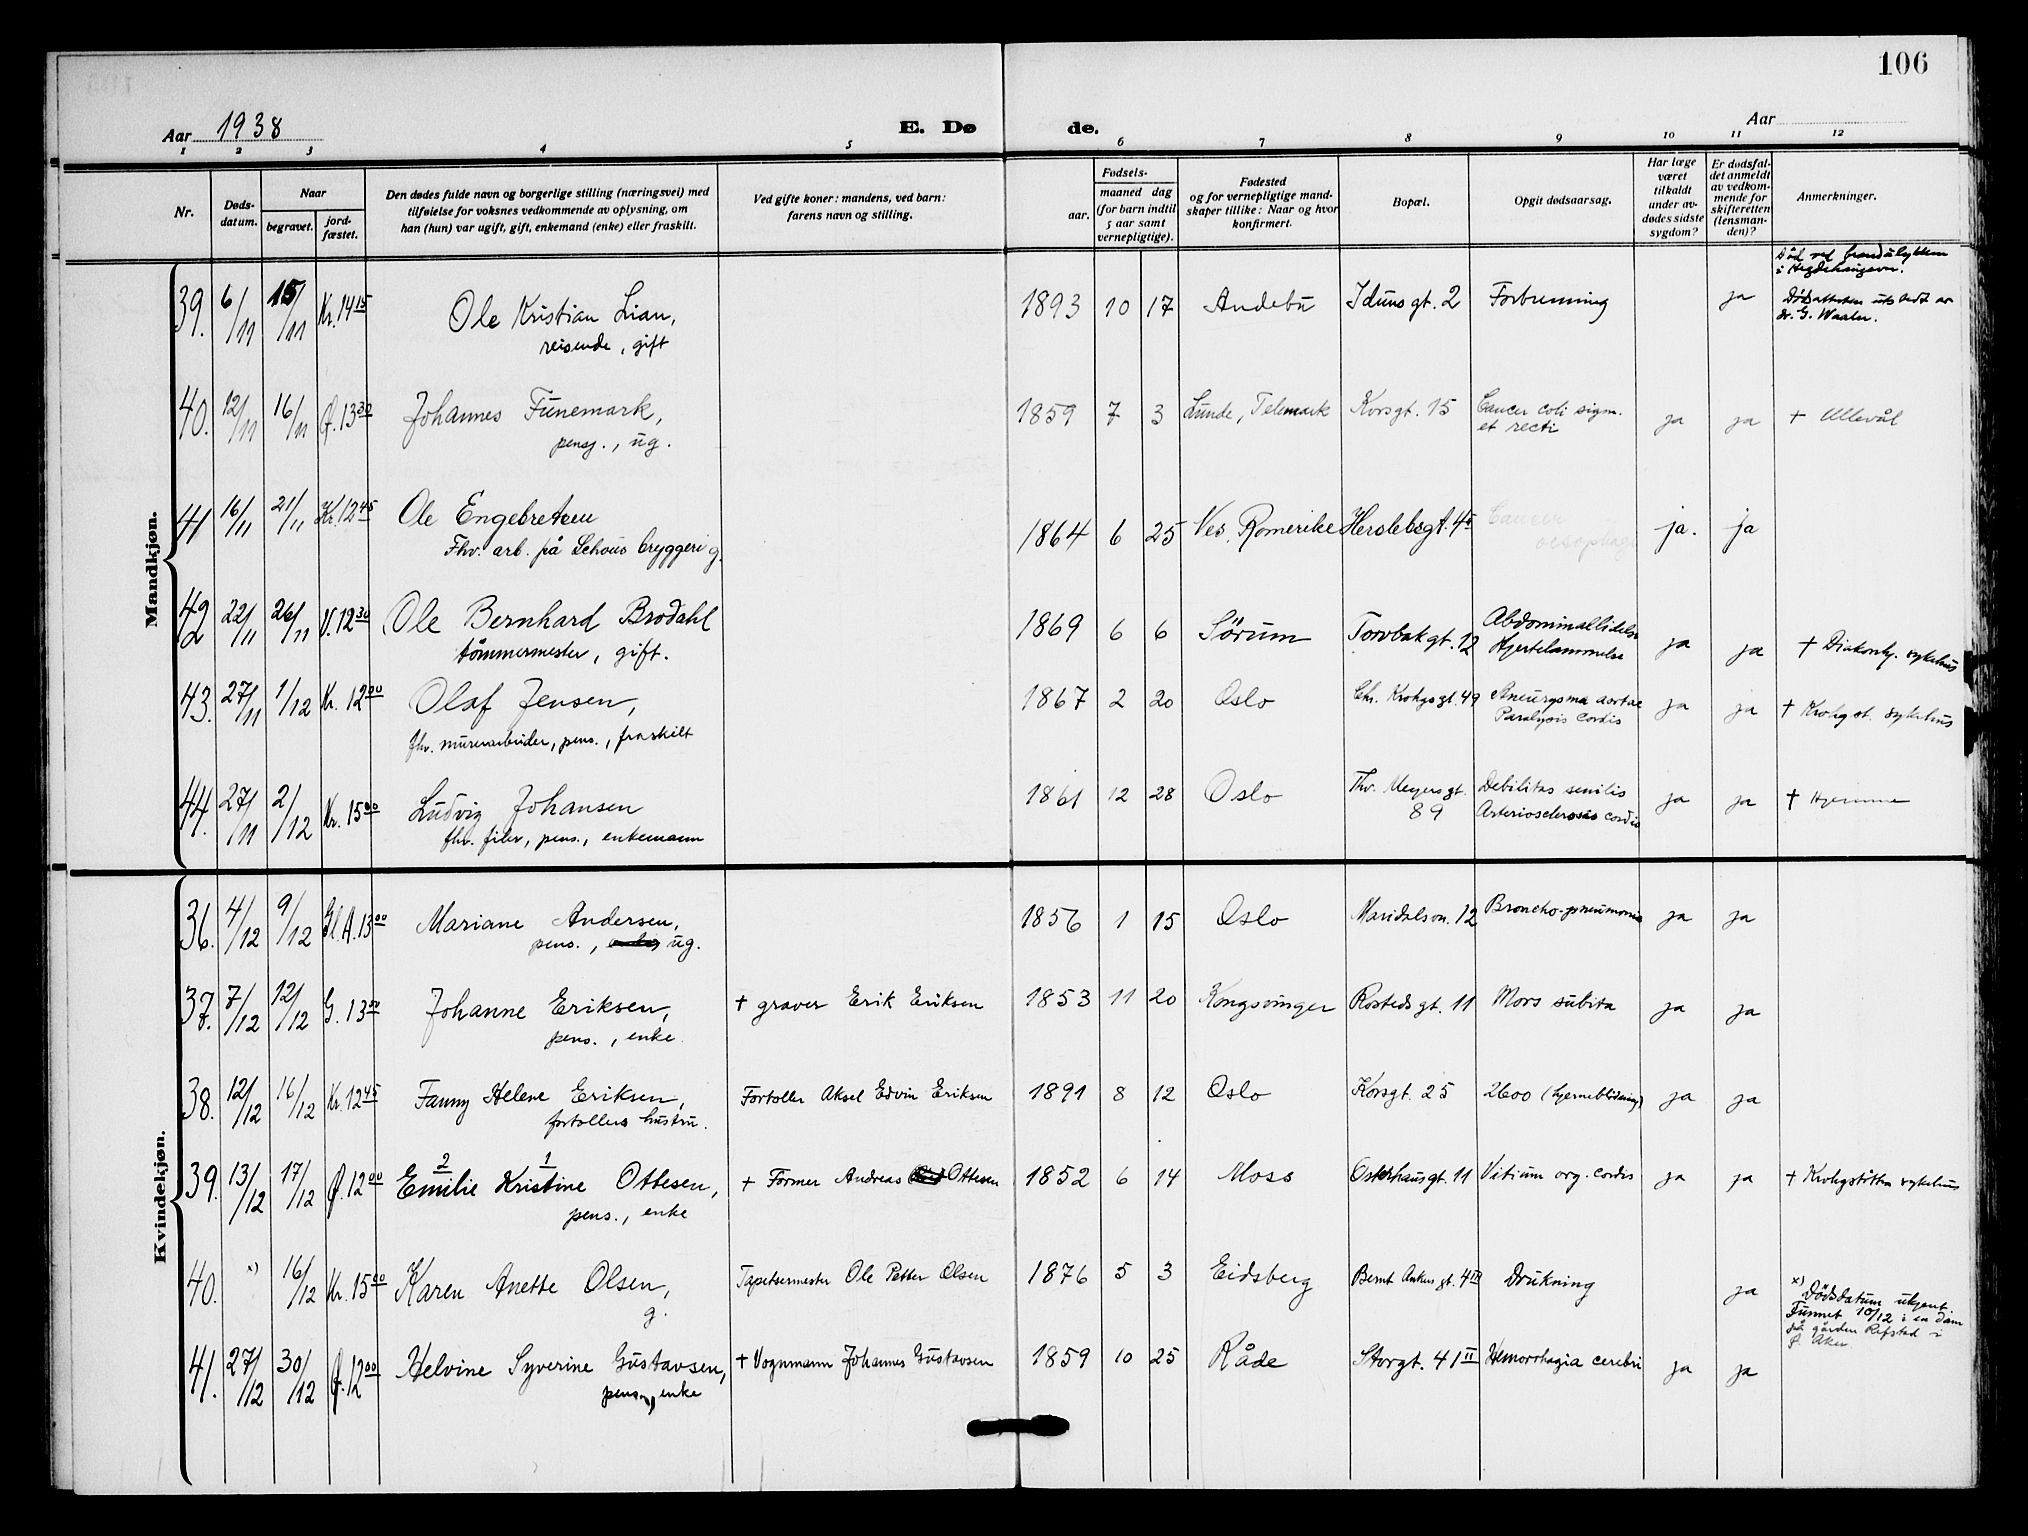 106
Aar 1938 E. Dø de. Aar
1 2 3 4 5 6 7 8 9 10 11 12
Nr.
Døds-
datum.
Naar
begravet.
jord-
fæstet.
Den dødes fulde navn og borgerlige stilling (næringsvei) med
tilføielse for voksnes vedkommende av oplysning, om
han (hun) var ugift, gift, enkemand (enke) eller fraskilt.
Ved gifte koner: mandens, ved barn:
farens navn og stilling.
Fødsels-
aar.
maaned dag
(for barn indtil
5 aar samt
vernepligtige).
Fødested
og for vernepligtige mand-
skaper tillike: Naar og hvor
konfirmert.
Bopæl.
Opgit dødsaarsag.
Har læge
været
tilkaldt
under av-
dødes sidste
sygdom?
Er dødsfal-
det anmeldt
av vedkom-
mende for
skifteretten
(lensman-
den)?
Anmerkninger.
Mandkjøn.
39. 6/11 15/11 Kr. 14 15 Ole Kristian Lian, 1893 10 17 Andebu Idunsgt. 2 Forbrenning ja
reisende, gift
Död ved brandulykken
i Hegdehaugsvn.
Dödsattesten utstedt av
dr. G. Waaler.
40. 12/11 16/11 Ø. 13 30 Johannes Funemark, 1859 7 3 Lunde, Telemark Korsgt. 15 Cancer coli sigm. ja ja † Ullevål
pensj., ug. et recti
41 16/11 21/11 Kr. 12 45 Ole Engebretsen 1864 6 25 Nes, Romerike Herslebsgt. 4 Cancer ja. ja
Fhv. arb. på Schous bryggeri g. oesophagi
42 22/11 26/11 V. 12 30 Ole Bernhard Brodahl 1869 6 6 Sörum Torvbakgt. 12 Abdominallidelse ja ja † Diakonhj. sykehus
tömmermester, gift. Hjertelammelse
43. 27/11 1/12 Kr. 12 00 Olaf Jensen, 1867 2 20 Oslo Chr. Krohgsgt. 49 Aneurysma aortae ja ja † Krohgst. sykehus
fhv. murerarbeider, pens., fraskilt Paralysis cordis
44. 27/11 2/12 Kr. 15 00 Ludvig Johansen 1861 12 28 Oslo Thv. Meyersgt. 89 Debilitas senilis ja ja † Hjemme
fhv. filer, pens., enkemann Arteriosclerosis cordis
Kvindekjøn.
36. 4/12 9/12 Gl. A. 13 00 Mariane Andersen, 1856 1 15 Oslo Maridalsvn. 12 Broncho-pneumonia ja ja
pens., ug.
37. 7/12 12/12 G. 13 00 Johanne Eriksen, † graver Erik Eriksen 1853 11 20 Kongsvinger Rostedsgt. 11 Mors subita ja ja
pens., enke
38. 12/12 16/12 Kr. 12 45 Fanny Helene Eriksen, Fortoller Aksel Edvin Eriksen 1891 8 12 Oslo Korsgt. 25 2600 (hjerneblödning) ja ja
fortollers hustru.
2 1
39. 13/12 17/12 Ø. 12 00 Emilie Kristine Ottesen, † Former Andreas Ottesen 1852 6 14 Moss Osterhausgt. 11 Vitium org. cordis ja ja † Krohgstötten sykehus
pens., enke
40. x) 16/12 Kr. 15 00 Karen Anette Olsen, Tapetsermester Ole Petter Olsen 1876 5 3 Eidsberg Bernt Ankersgt. 4 III Drukning ja
g.
x) Dödsdatum ukjent.
Funnet 10/12 i en dam
på gården Refstad i
Ø. Aker.
41. 27/12 30/12 Ø. 12 00 Helvine Syverine Gustavsen, † Vognmann Johannes Gustavsen 1859 10 25 Råde Storgt. 41 II Hemorrhagia cerebri ja ja
pens., enke